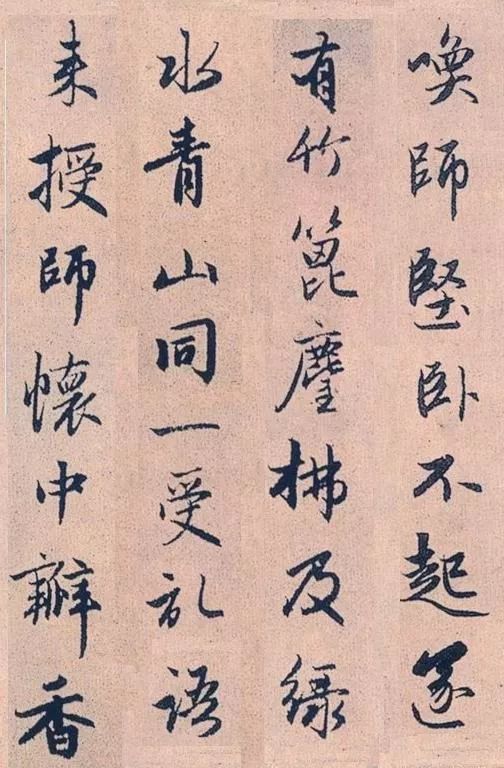 喚師堅卧不起遂
有竹篦麈拂及緑
水青山同一受記語
来授師懷中瓣香